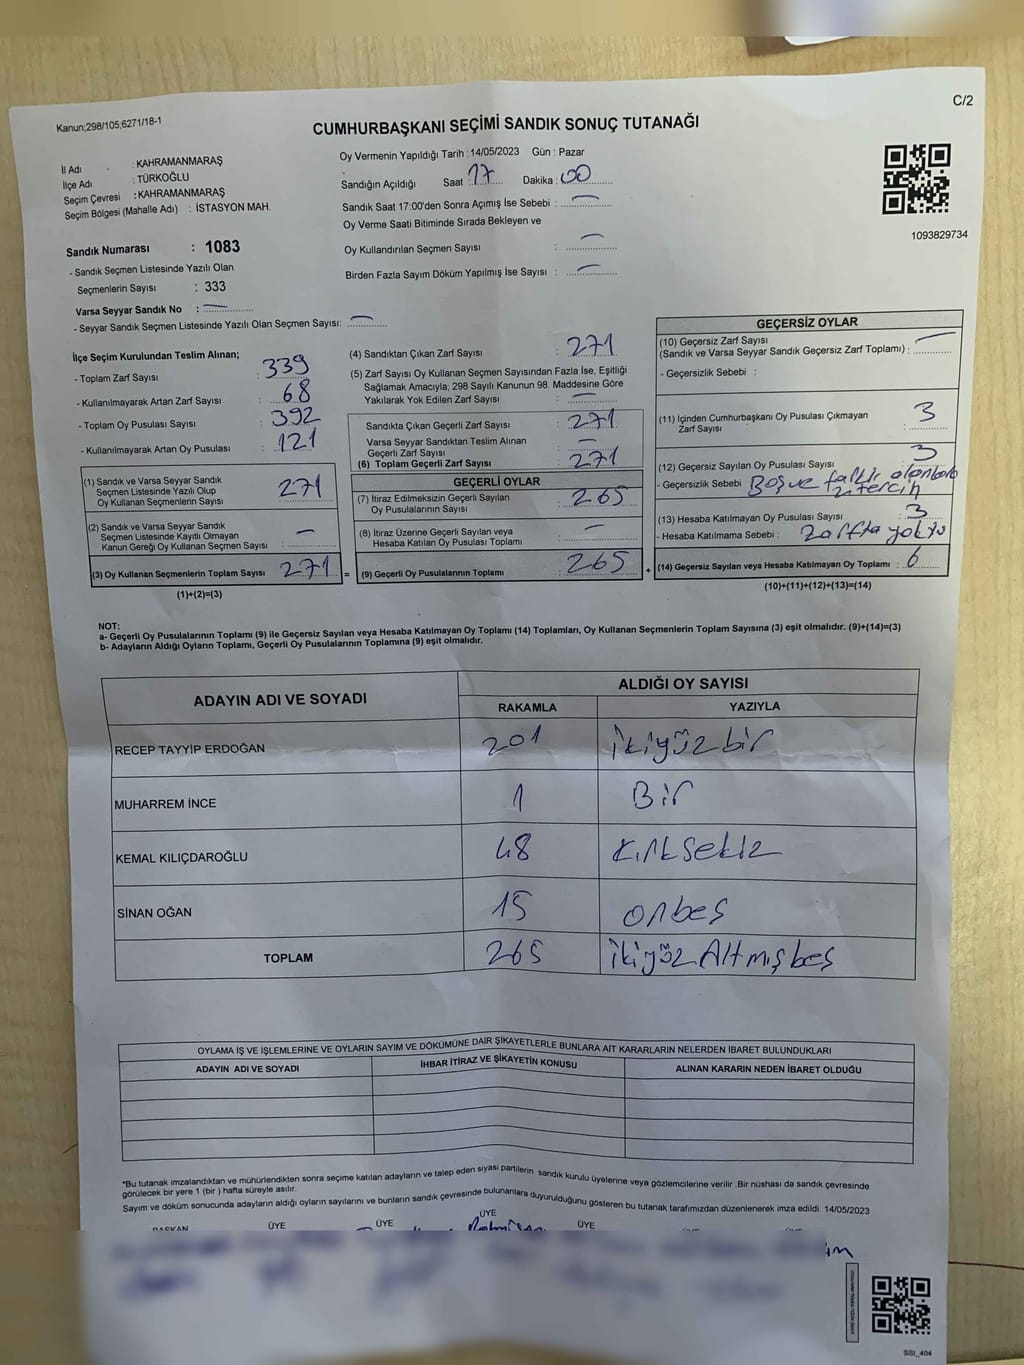 C/2
Kanun;298/105;6271/18-1
CUMHURBAŞKANI SEÇİMİ SANDIK SONUÇ TUTANAĞI
İl Adı : KAHRAMANMARAŞ
İlçe Adı : TÜRKOĞLU
Seçim Çevresi : KAHRAMANMARAŞ
Seçim Bölgesi (Mahalle Adı) : İSTASYON MAH.
Sandık Numarası : 1083
- Sandık Seçmen Listesinde Yazılı Olan
Seçmenlerin Sayısı : 333
Varsa Seyyar Sandık No : —
- Seyyar Sandık Seçmen Listesinde Yazılı Olan Seçmen Sayısı: —
Oy Vermenin Yapıldığı Tarih :14/05/2023 Gün : Pazar
Sandığın Açıldığı Saat : 17 Dakika : 00
Sandık Saat 17:00'den Sonra Açımış İse Sebebi : —
Oy Verme Saati Bitiminde Sırada Bekleyen ve
Oy Kullandırılan Seçmen Sayısı : —
Birden Fazla Sayım Döküm Yapılmış İse Sayısı : —
1093829734
İlçe Seçim Kurulundan Teslim Alınan;
- Toplam Zarf Sayısı : 339
- Kullanılmayarak Artan Zarf Sayısı : 68
- Toplam Oy Pusulası Sayısı : 392
- Kullanılmayarak Artan Oy Pusulası : 121
(1) Sandık ve Varsa Seyyar Sandık
Seçmen Listesinde Yazılı Olup
Oy Kullanan Seçmenlerin Sayısı : 271
(2) Sandık ve Varsa Seyyar Sandık
Seçmen Listesinde Kayıtlı Olmayan
Kanun Gereği Oy Kullanan Seçmen Sayısı : —
(3) Oy Kullanan Seçmenlerin Toplam Sayısı : 271 =
(1)+(2)=(3)
(4) Sandıktan Çıkan Zarf Sayısı : 271
(5) Zarf Sayısı Oy Kullanan Seçmen Sayısından Fazla İse, Eşitliği
Sağlamak Amacıyla; 298 Sayılı Kanunun 98. Maddesine Göre
Yakılarak Yok Edilen Zarf Sayısı : —
Sandıkta Çıkan Geçerli Zarf Sayısı : 271
Varsa Seyyar Sandıktan Teslim Alınan
Geçerli Zarf Sayısı : —
(6) Toplam Geçerli Zarf Sayısı : 271
GEÇERLİ OYLAR
(7) İtiraz Edilmeksizin Geçerli Sayılan
Oy Pusulalarının Sayısı : 265
(8) İtiraz Üzerine Geçerli Sayılan veya
Hesaba Katılan Oy Pusulası Toplamı : —
(9) Geçerli Oy Pusulalarının Toplamı : 265 +
GEÇERSİZ OYLAR
(10) Geçersiz Zarf Sayısı
(Sandık ve Varsa Seyyar Sandık Geçersiz Zarf Toplamı) : —
- Geçersizlik Sebebi :
(11) İçinden Cumhurbaşkanı Oy Pusulası Çıkmayan
Zarf Sayısı : 3
(12) Geçersiz Sayılan Oy Pusulası Sayısı : 3
- Geçersizlik Sebebi : Boş ve farklı
(13) Hesaba Katılmayan Oy Pusulası Sayısı : 3
- Hesaba Katılmama Sebebi : Zarfta yoktu
(14) Geçersiz Sayılan veya Hesaba Katılmayan Oy Toplamı : 6
(10)+(11)+(12)+(13)=(14)
NOT:
a- Geçerli Oy Pusulalarının Toplamı (9) ile Geçersiz Sayılan veya Hesaba Katılmayan Oy Toplamı (14) Toplamları, Oy Kullanan Seçmenlerin Toplam Sayısına (3) eşit olmalıdır. (9)+(14)=(3)
b- Adayların Aldığı Oyların Toplamı, Geçerli Oy Pusulalarının Toplamına (9) eşit olmalıdır.
ADAYIN ADI VE SOYADI
ALDIĞI OY SAYISI
RAKAMLA YAZIYLA
RECEP TAYYİP ERDOĞAN 201 İkiyüzbir
MUHARREM İNCE 1 Bir
KEMAL KILIÇDAROĞLU 48 Kırksekiz
SİNAN OĞAN 15 onbeş
TOPLAM 265 İkiyüzAltmışbeş
OYLAMA İŞ VE İŞLEMLERİNE VE OYLARIN SAYIM VE DÖKÜMÜNE DAİR ŞİKAYETLERLE BUNLARA AİT KARARLARIN NELERDEN İBARET BULUNDUKLARI
ADAYIN ADI VE SOYADI İHBAR İTİRAZ VE ŞİKAYETİN KONUSU ALINAN KARARIN NEDEN İBARET OLDUĞU
"Bu tutanak imzalandıktan ve mühürlendikten sonra seçime katılan adayların ve talep eden siyasi partilerin sandık kurulu üyelerine veya gözlemcilerine verilir .Bir nüshası da sandık çevresinde
görülecek bir yere 1 (bir ) hafta süreyle asılır.
Sayım ve döküm sonucunda adayların aldığı oyların sayılarını ve bunların sandık çevresinde bulunanlara duyurulduğunu gösteren bu tutanak tarafımızdan düzenlenerek imza edildi. 14/05/2023
BAŞKAN ÜYE ÜYE ÜYE ÜYE
SSI_404